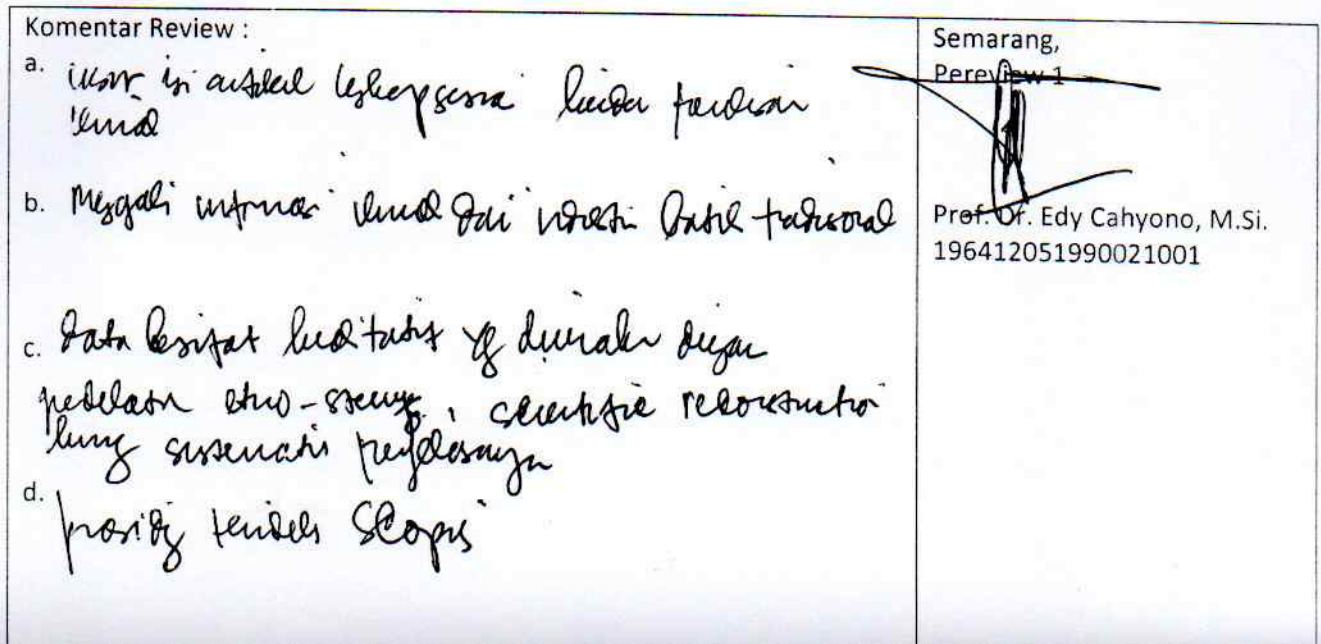 Komentar Review :
a. isi artikel lengkap sesuai
ilmiah
b. Menggali informasi ilmiah dari industri batik tradisional
c. data bersifat kualitatif yg dengan
etno-, scientific reconstruction
sistematis penjelasannya
d. prosiding terindeks Scopus
Semarang,
Pereview 1
Prof. Dr. Edy Cahyono, M.Si.
196412051990021001